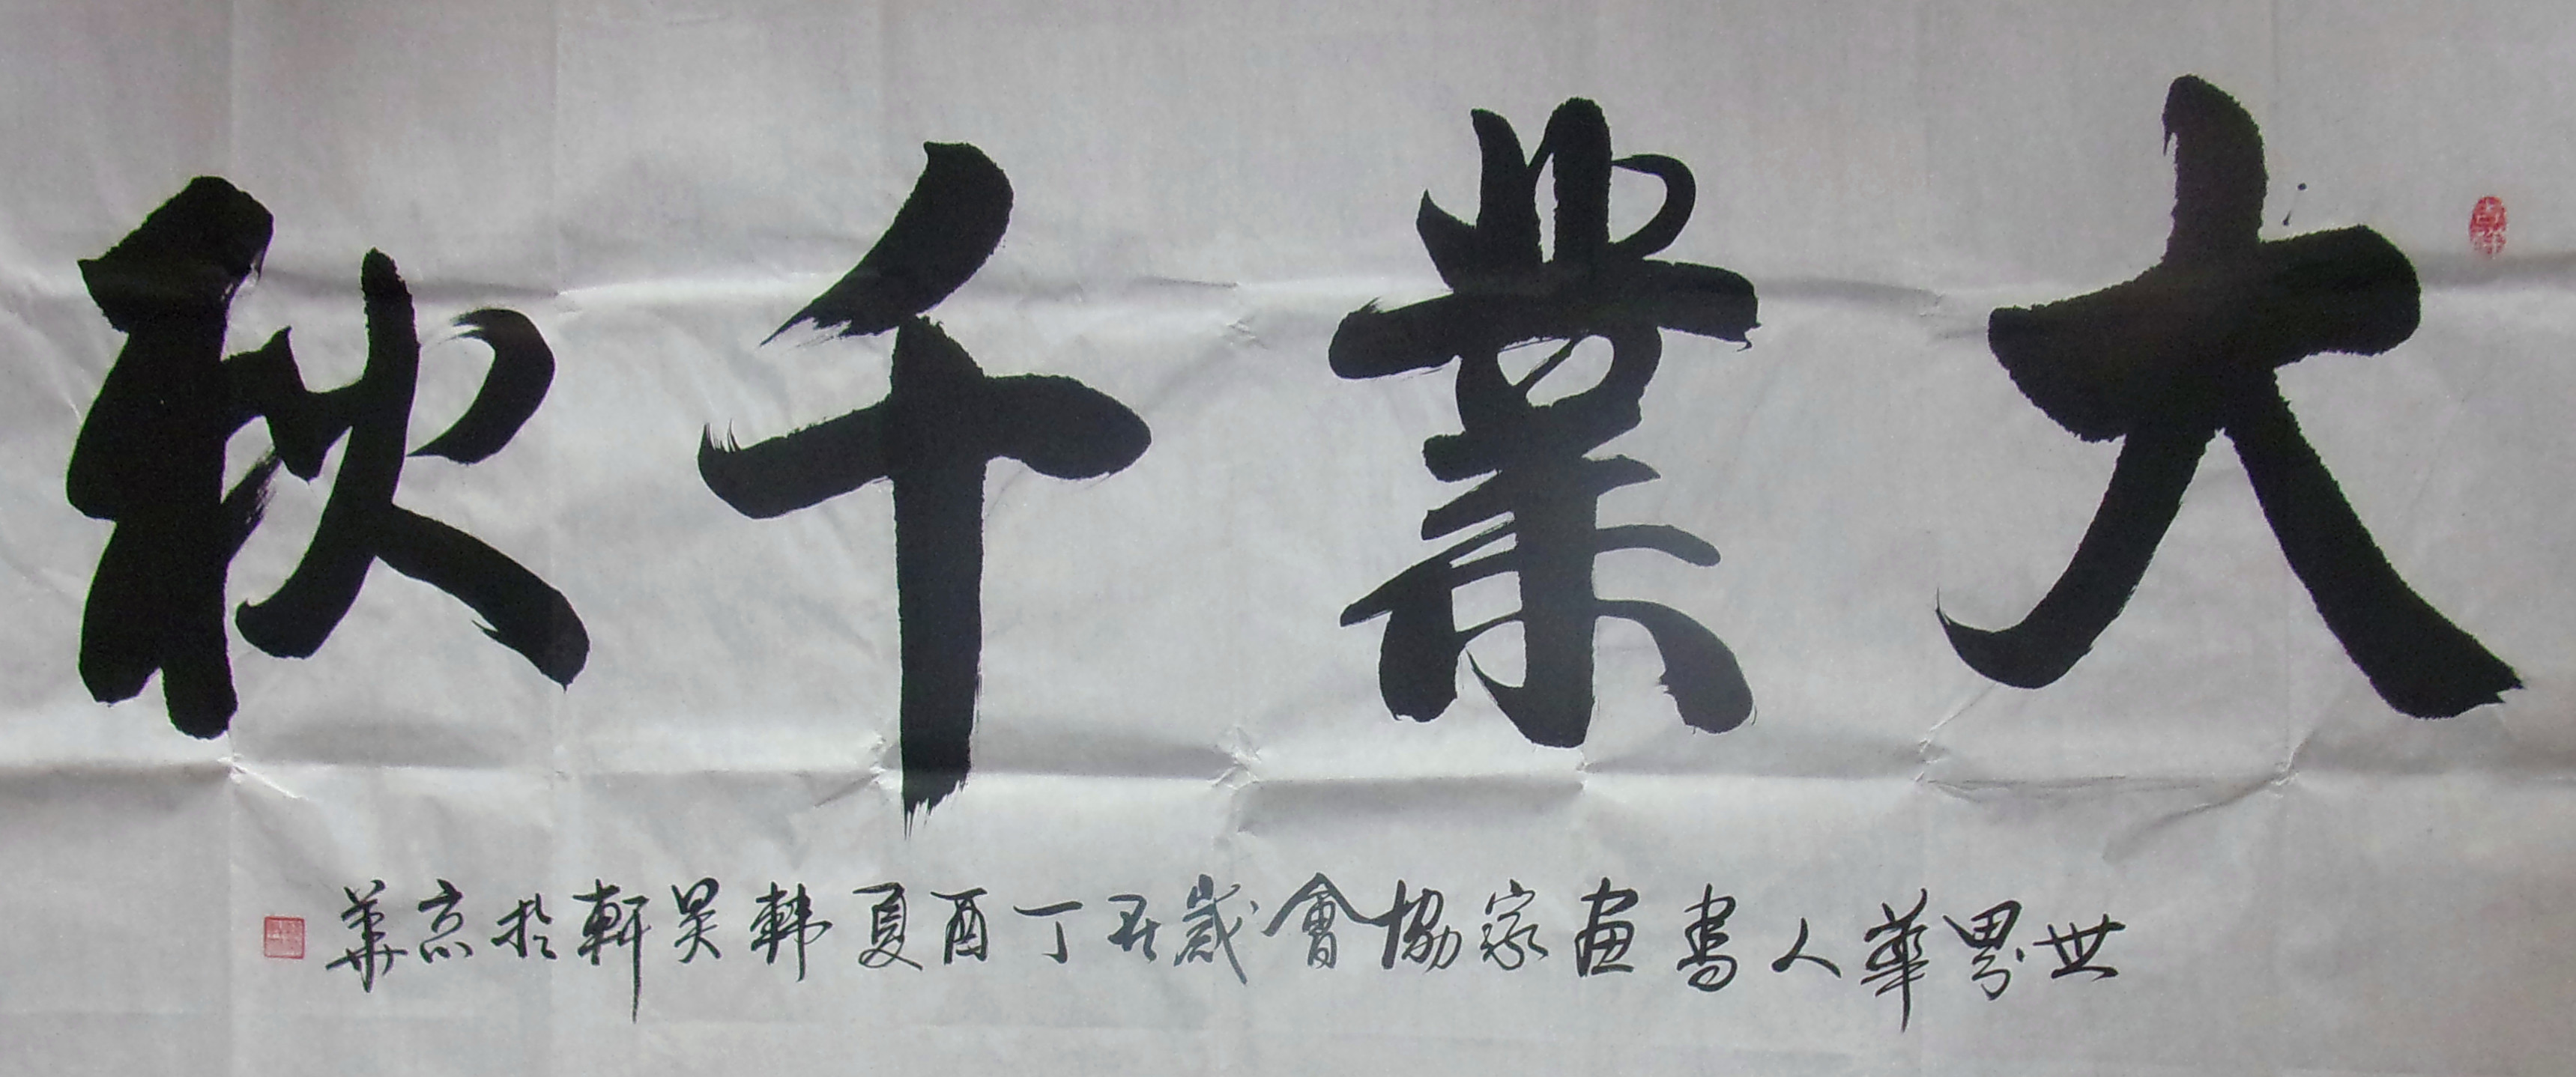 大業千秋
世界華人書画家協會歲在丁酉夏韩昊軒於京華